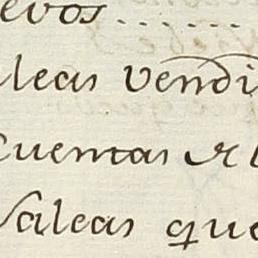 evos.......
leas vendi
cuentas de l
Valeas que